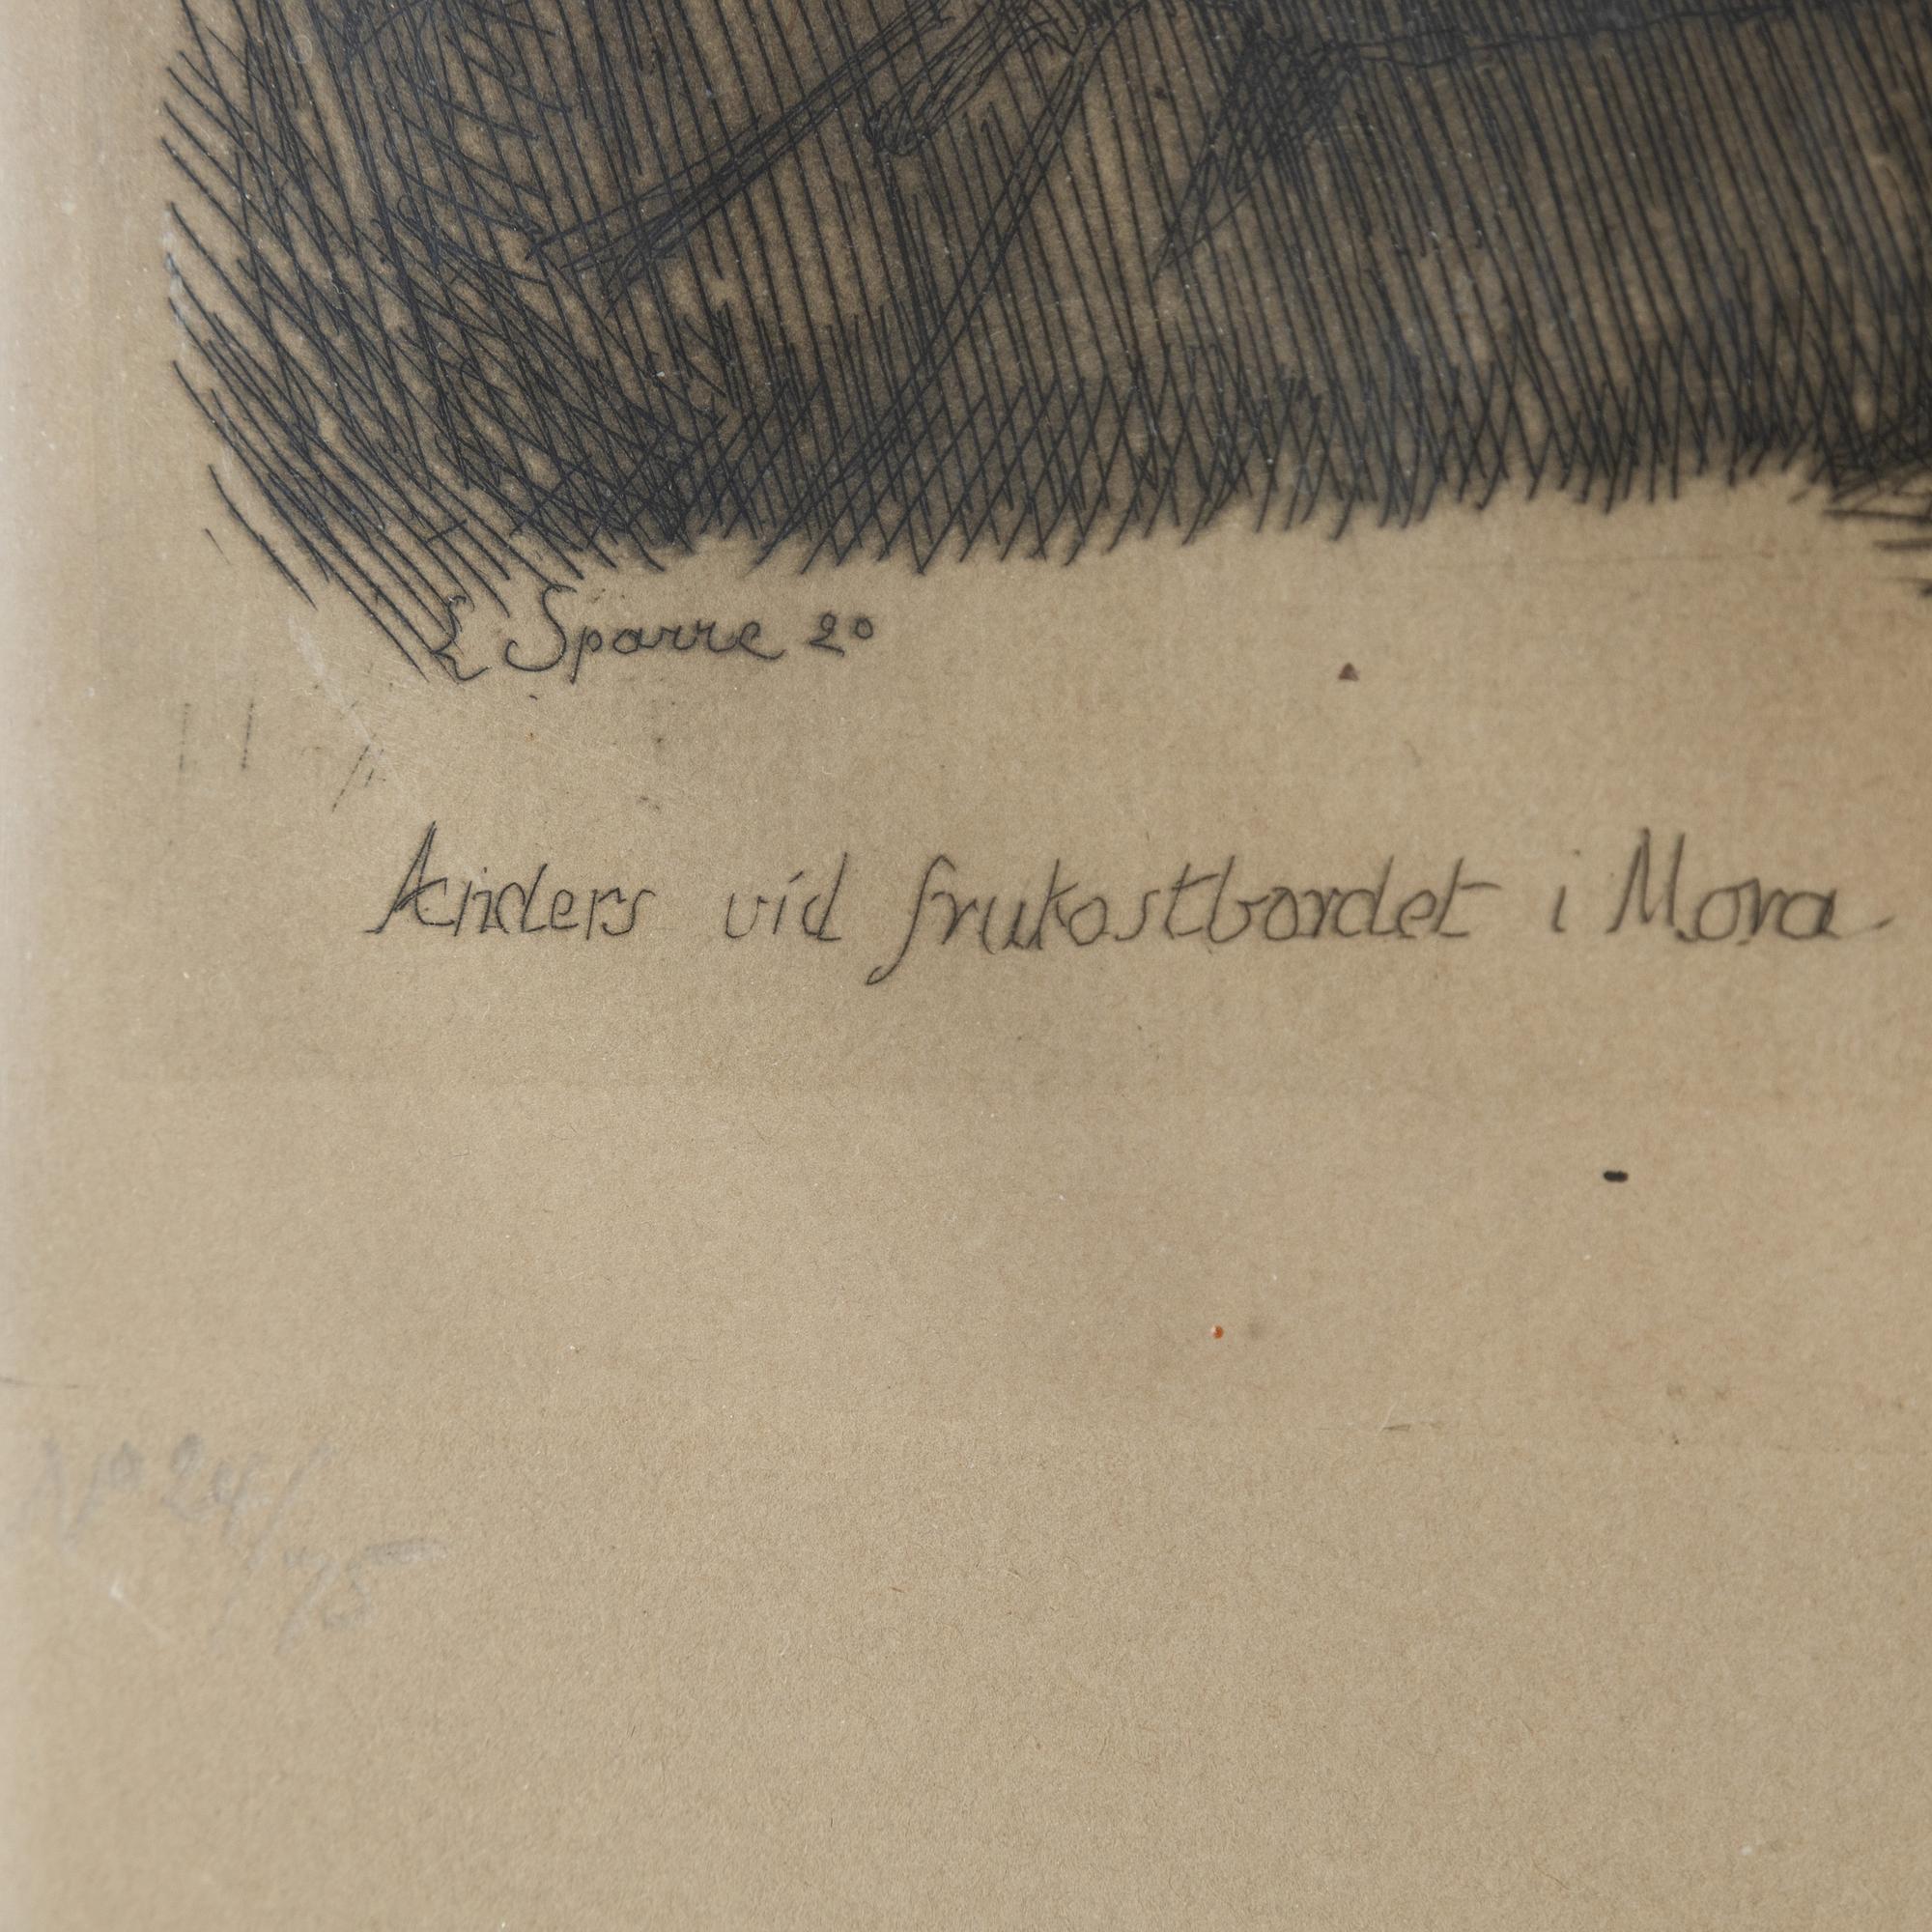 L Sparre 20
Anders vid frukostbordet i Mora
Nº 24/
75